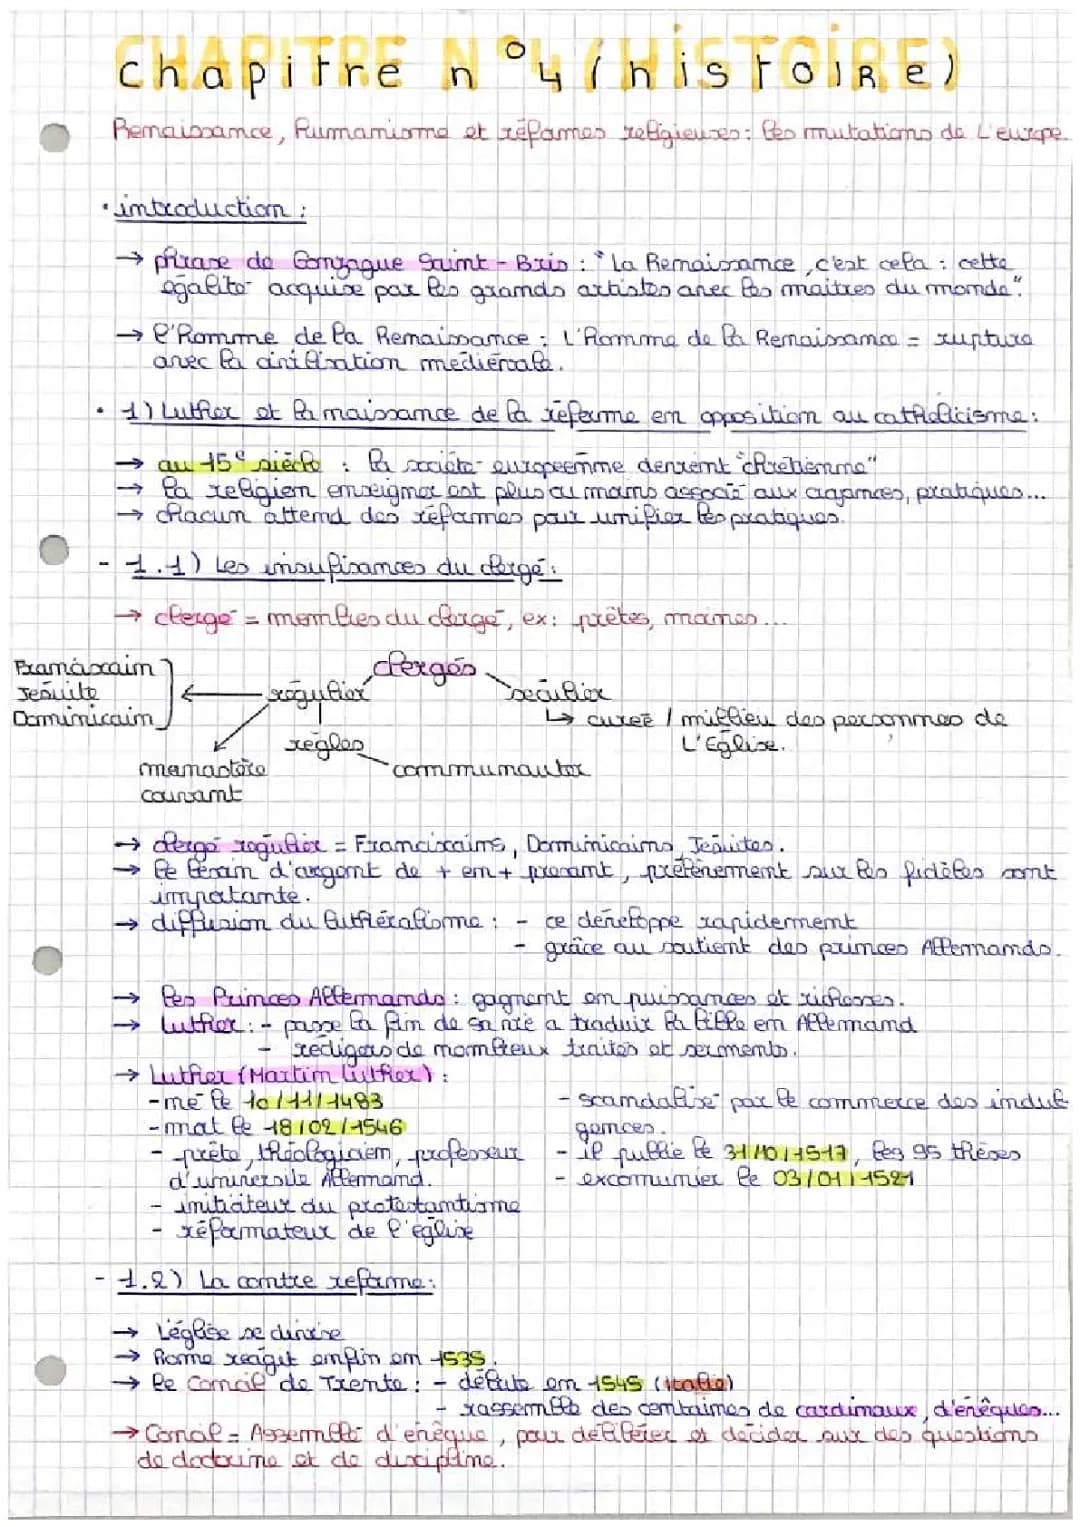 Chapitre n°4 (histoIRe)
Renaissance, Humanisme et réformes religieuses : les mutations de L'europe.
• introduction :
→ phrase de Gonzague Saint-Bris : "La Renaissance, c'est cela : cette
égalité acquise par les grands artistes avec les maitres du monde".
→ l'Homme de la Renaissance : L'Homme de la Renaissance = rupture
avec la civilisation mediévale.
• 1) Luther et la naissance de la réforme en opposition au catholicisme :
→ au 15e siècle : la société européenne devient "chrétienne"
→ la religion enseigner est plus ou moins associé aux croyances, pratiques...
→ chacun attend des réformes pour unifier les pratiques.
- 1.1) Les insufisances du clergé :
→ clergé = membres du clergé, ex : prêtes, moines...
clergés
Framáscain
Jésuite
Dominicain
régulier
séculier
↳ cureé / millieu des personnes de
L'Église.
règles
communauter
monastère
couvant
→ clergé régulier = Franciscains, Dominicains, Jésuites.
→ le besoin d'argent de + en + presant, prélèvement sur les fidèles sont
importante.
→ diffusion du luthéralisme : - ce développe rapidement
- grâce au soutient des princes Allemands.
→ les Princes Allemands : gagnent en puissances et richesses.
→ Luther : - passe la fin de sa vie a traduir la bible en Allemand
- rédigers de nombreux traités et serments.
→ Luther (Martin Luther) :
- né le 10/11/1483
- mort le 18/02/1546
- prête, théologiciem, professeur
d'université Allemand.
- initiateur du protestantisme
- réformateur de l'église
- scandalisé par le commerce des indul
gences.
- il publie le 31/10/1517, les 95 thèses
- excomunier le 03/01/1521
- 1.2) La contre reforme :
→ L'église se divise
→ Rome réagit enfin en 1535.
→ le Concil de Trente : - débute en 1545 (Italie)
- rassemble des centaines de cardinaux, d'évêques...
→ Concil = Assemblé d'évêque, pour délibérer et décider sur des questions
de doctrine et de discipline.